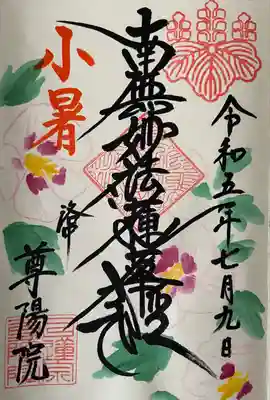 令和五年七月九日
南無妙法蓮華経
小暑
尊陽院